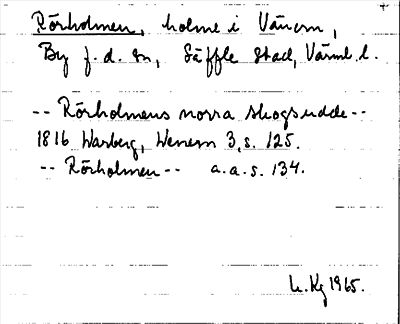 Rörholmen, holme i Vänern,
By f.d. sn, Säffle stad, Värml. l.
-- Rörholmens norra skogsudde --
1816 Warberg, Wenern 3, s. 125.
-- Rörholmen -- a.a. s. 134.
L. Kg 1965.